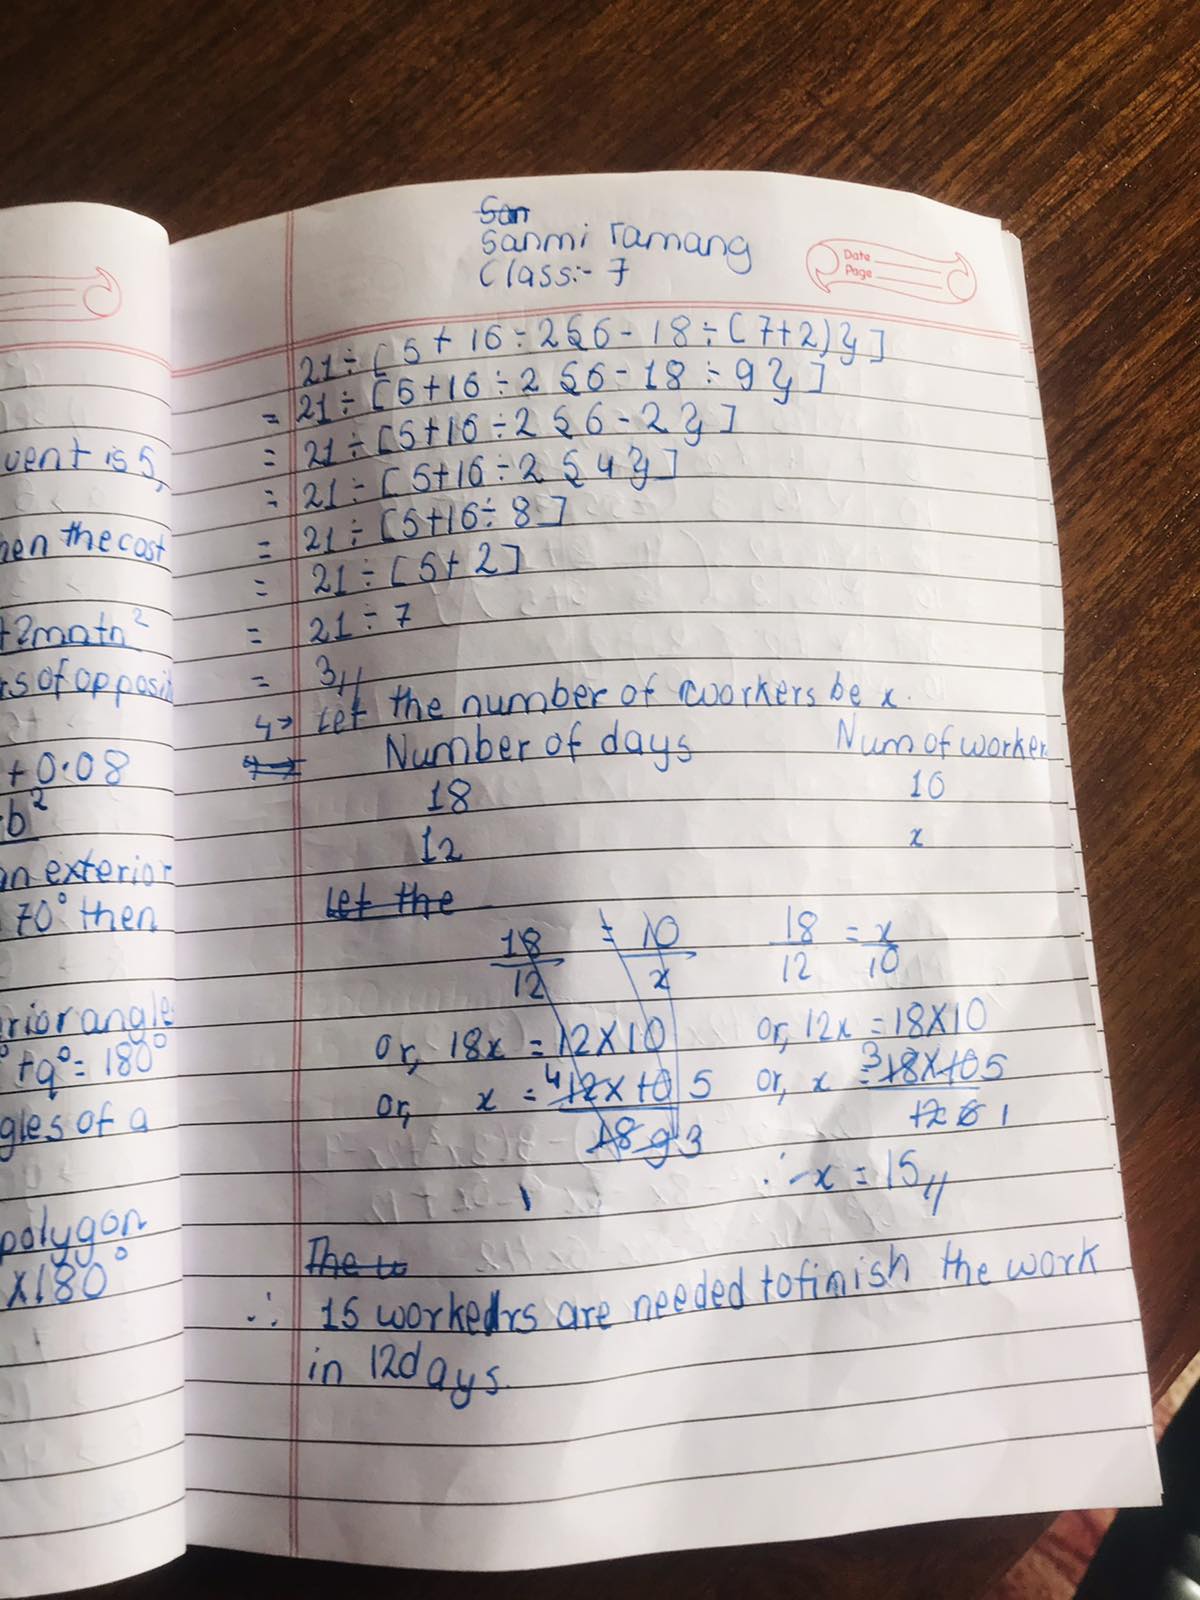 uent is 5,
hen the cost
+2mn+n²
rs of opposit
+0.08
b²
an exterior
70° then
erior angle
° +q° = 180°
gles of a
polygon
×180°
San
Sanmi Tamang
Class:- 7
Date
Page
21÷[5+16÷2{6-18÷(7+2)}]
= 21÷[5+16÷2{6-18÷9}]
= 21÷[5+16÷2{6-2}]
= 21÷[5+16÷2{4}]
= 21÷[5+16÷8]
= 21÷[5+2]
= 21÷7
= 3//
4→ Let the number of workers be x.
Number of days Num of worker
18 10
12 x
Let the
18/12 = 10/x 18/12 = x/10
or, 18x = 12×10 or, 12x = 18×10
or, x = 4 12×10 5 / 18 9 3 or, x = 3 18×10 5 / 12 6 1
∴ x = 15//
The w
∴ 15 workers are needed to finish the work
in 12days.